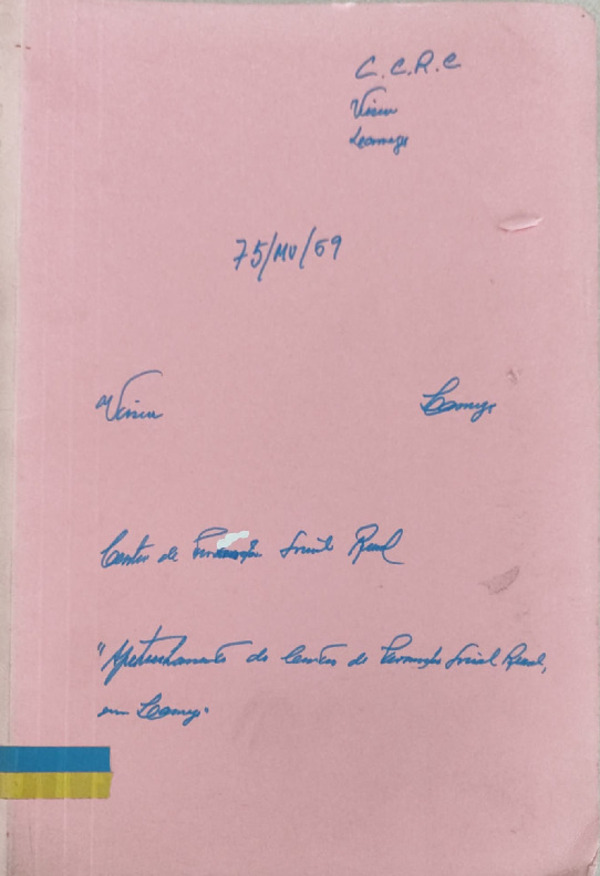 C.C.R.C
Viseu
Lamego
75/MU/69
Viseu
Lamego
Centro de Formação Social Rural
"Apetrechamento do Centro de Formação Social Rural,
em Lamego.